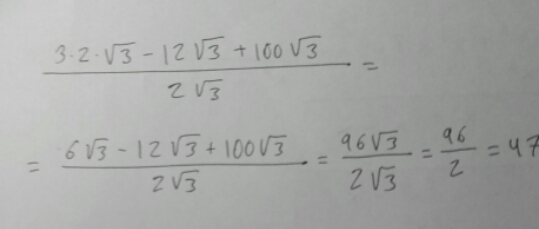 (3·2·√3 − 12√3 + 100√3) / (2√3) =
= (6√3 − 12√3 + 100√3) / (2√3) = 96√3 / 2√3 = 96/2 = 47